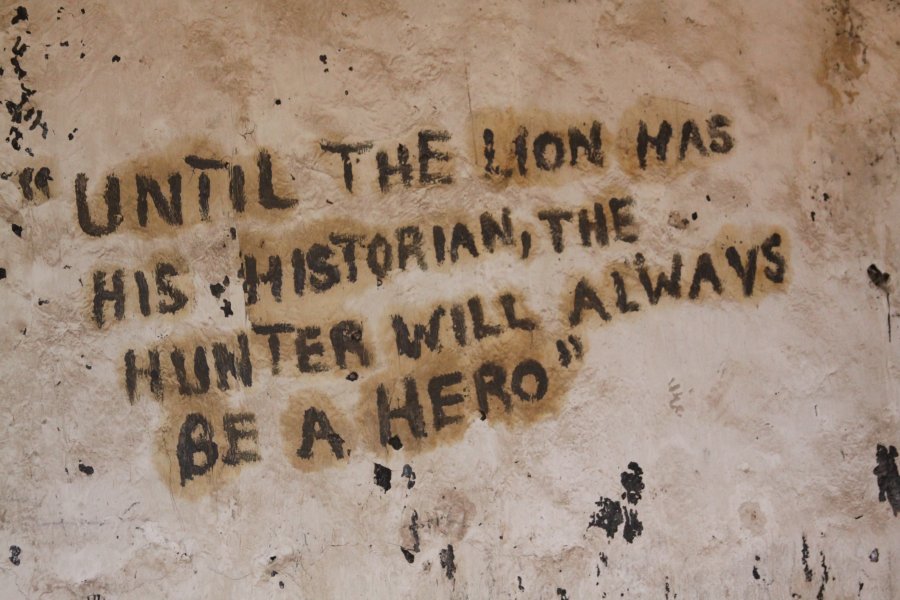 "UNTIL THE LION HAS
HIS HISTORIAN, THE
HUNTER WILL ALWAYS
BE A HERO"